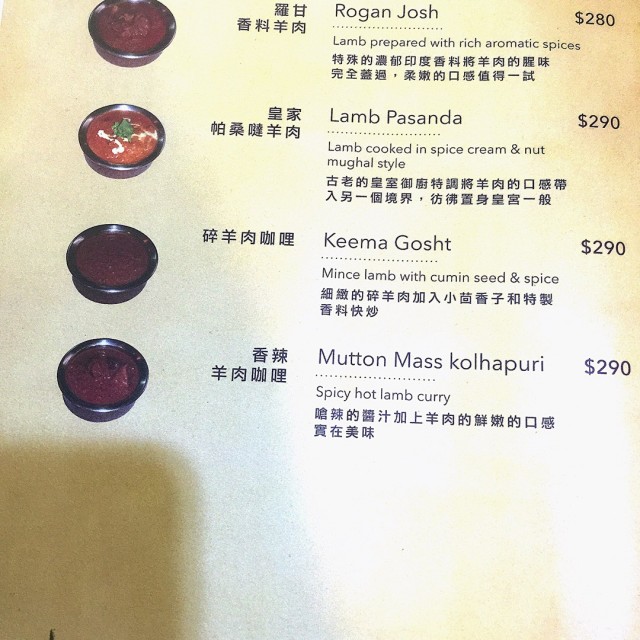 羅甘
香料羊肉
Rogan Josh
$280
Lamb prepared with rich aromatic spices
特殊的濃郁印度香料將羊肉的腥味
完全蓋過，柔嫩的口感值得一試
皇家
帕桑噠羊肉
Lamb Pasanda
$290
Lamb cooked in spice cream & nut
mughal style
古老的皇室御廚特調將羊肉的口感帶
入另一個境界，彷彿置身皇宮一般
碎羊肉咖哩
Keema Gosht
$290
Mince lamb with cumin seed & spice
細緻的碎羊肉加入小茴香子和特製
香料快炒
香辣
羊肉咖哩
Mutton Mass kolhapuri
$290
Spicy hot lamb curry
嗆辣的醬汁加上羊肉的鮮嫩的口感
實在美味